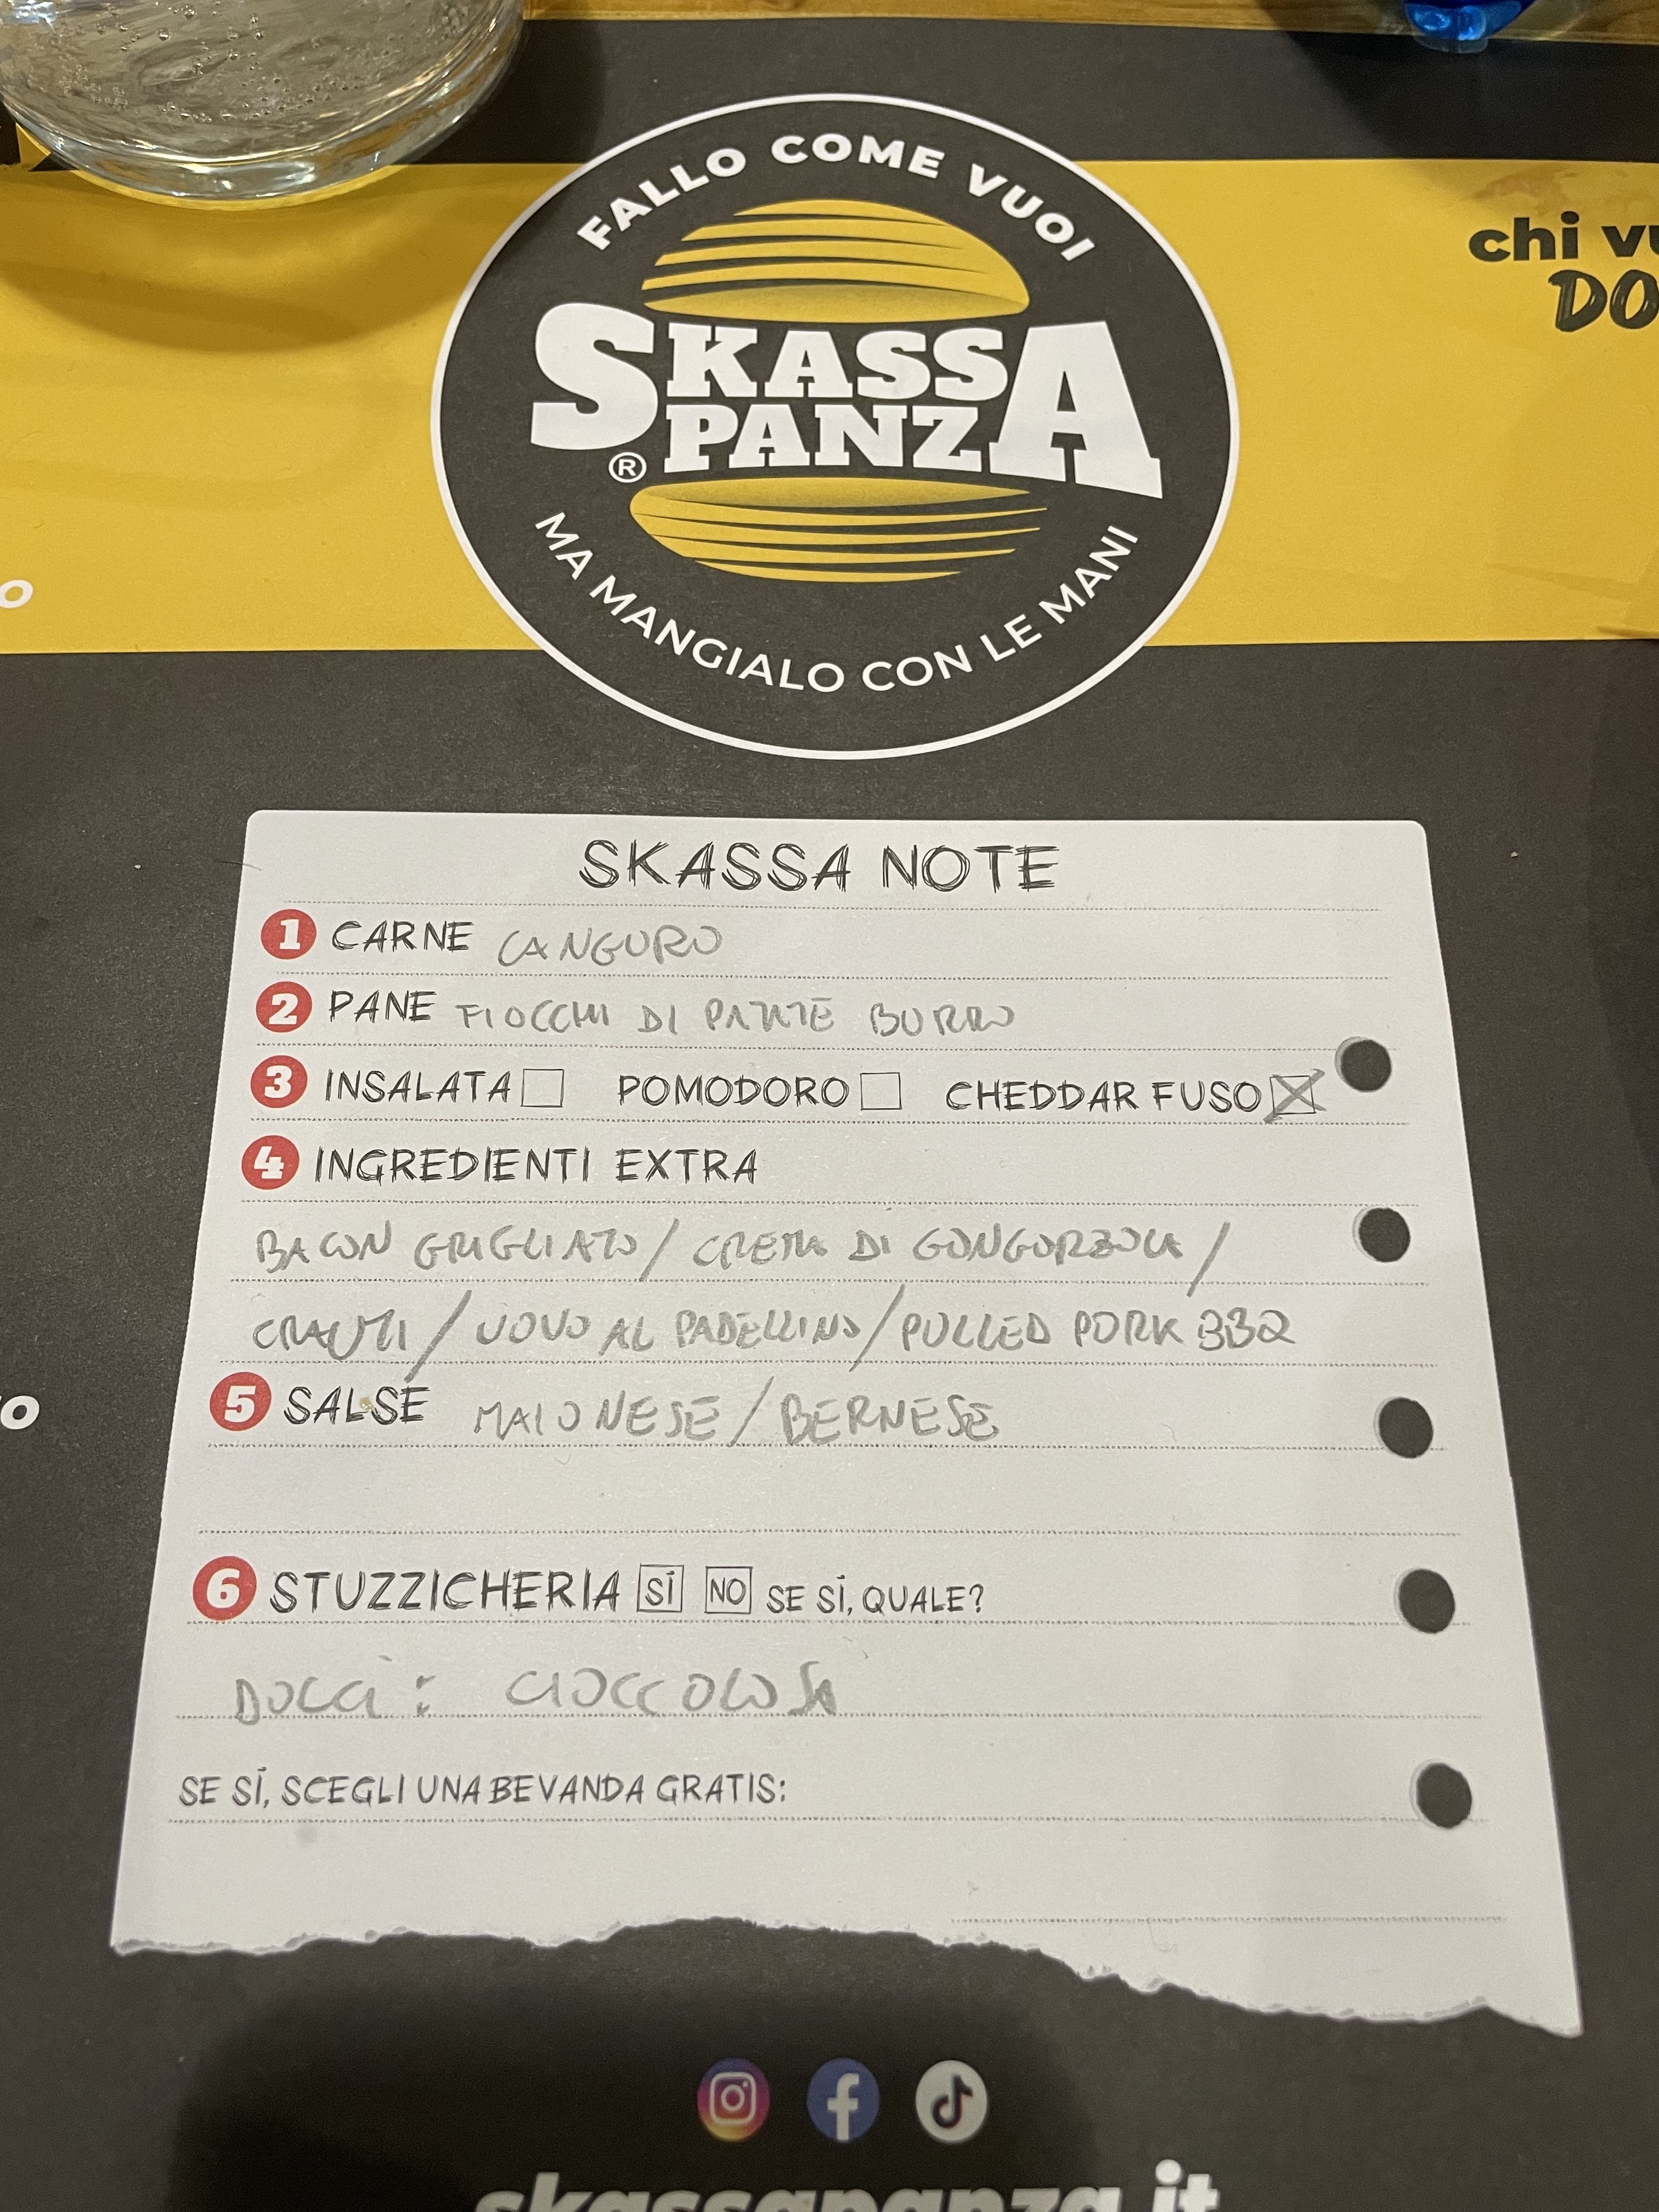 FALLO COME VUOI
chi vu
DO
SKASSA
PANZA
®
MA MANGIALO CON LE MANI
O
SKASSA NOTE
1 CARNE CANGURO
2 PANE FIOCCHI DI PATATE BURRO
3 INSALATA POMODORO CHEDDAR FUSO
4 INGREDIENTI EXTRA
BACON GRIGLIATO / CREMA DI GONGORZOLA /
CRAUTI / UOVO AL PADELLINO / PULLED PORK BBQ
5 SALSE MAIONESE / BERNESE
O
6 STUZZICHERIA SÍ NO SE SÍ, QUALE?
DOLCI: CIOCCOLOSA
SE SÍ, SCEGLI UNA BEVANDA GRATIS:
skassapanza.it